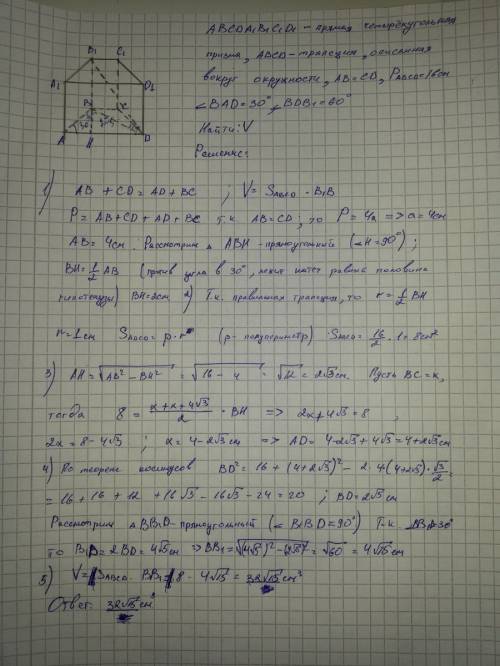 ABCDA₁B₁C₁D₁ - прямая четырёхугольная
призма, ABCD - трапеция, описанная
вокруг окружности, AB=CD, P_ABCD=16см
∠BAD=30°, ∠BDB₁=60°
Найти: V
Решение:
B₁ C₁
A₁ D₁
B
30°
A H D
1) AB + CD = AD + BC ; V = S_ABCD · B₁B
P = AB+CD+AD+BC т.к. AB=CD; то P = 4a => a = 4см
AB = 4см. Рассмотрим △ ABH - прямоугольный (∠H=90°);
BH = 1/2 AB (против угла в 30°, лежит катет равный половине
гипотенузы) BH=2см 2) Т.к. правильная трапеция, то r = 1/2 BH
r = 1см S_ABCD = p · r (p - полупериметр) S_ABCD = 16/2 · 1 = 8см²
3) AH = √AB² - BH² = √16 - 4 = √12 = 2√3 см. Пусть BC = x,
тогда 8 = x + x + 4√3 / 2 · BH => 2x + 4√3 = 8 ,
2x = 8 - 4√3 ; x = 4 - 2√3 см => AD = 4 - 2√3 + 4√3 = 4 + 2√3 см
4) По теореме косинусов BD² = 16 + (4+2√3)² - 2·4(4+2√3)·√3/2 =
= 16 + 16 + 12 + 16√3 - 16√3 - 24 = 20 ; BD = 2√5 см
Рассмотрим △ BB₁D - прямоугольный (∠B₁BD = 90°) Т.к. ∠B₁=30°
то B₁D = 2BD = 4√5 см => BB₁ = √(4√5)² - (2√5)² = √60 = 4√15 см
5) V = S_ABCD · BB₁ = 8 · 4√15 = 32√15 см³
Ответ: 32√15 см³